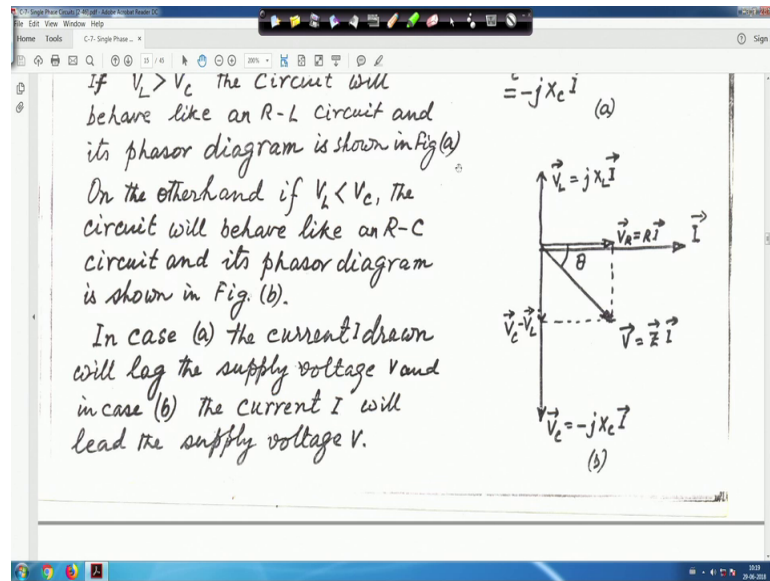 C-7- Single Phase Circuits (2-48).pdf - Adobe Acrobat Reader DC
File Edit View Window Help
Home Tools C-7- Single Phase ... × Sign
15 / 45 200%
If V_L > V_C the Circuit will
behave like an R-L Circuit and
its phasor diagram is shown in Fig (a)
On the otherhand if V_L < V_C, the
circuit will behave like an R-C
circuit and its phasor diagram
is shown in Fig. (b).
In case (a) the current I drawn
will lag the supply voltage V and
in case (b) the current I will
lead the supply voltage V.
= -j X_C I⃗
(a)
V⃗_L = j X_L I⃗
V⃗_R = R I⃗
I⃗
θ
V⃗_C - V⃗_L
V⃗ = Z⃗ I⃗
V⃗_C = -j X_C I⃗
(b)
10:19
29-06-2018